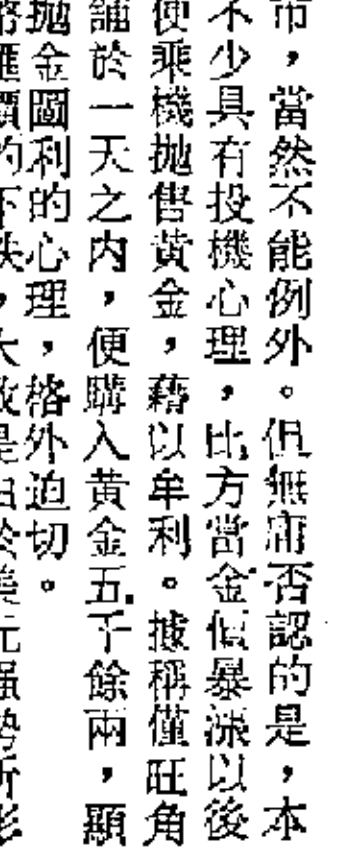 市，當然不能例外。但無庸否認的是，本
不少具有投機心理，比方當金價暴漲以後
便乘機拋售黃金，藉以牟利。據稱僅旺角
舖於一天之內，便購入黃金五千餘兩，顯
拋金圖利的心理，格外迫切。
幣匯價的下跌，大致是由於美元强勢所影